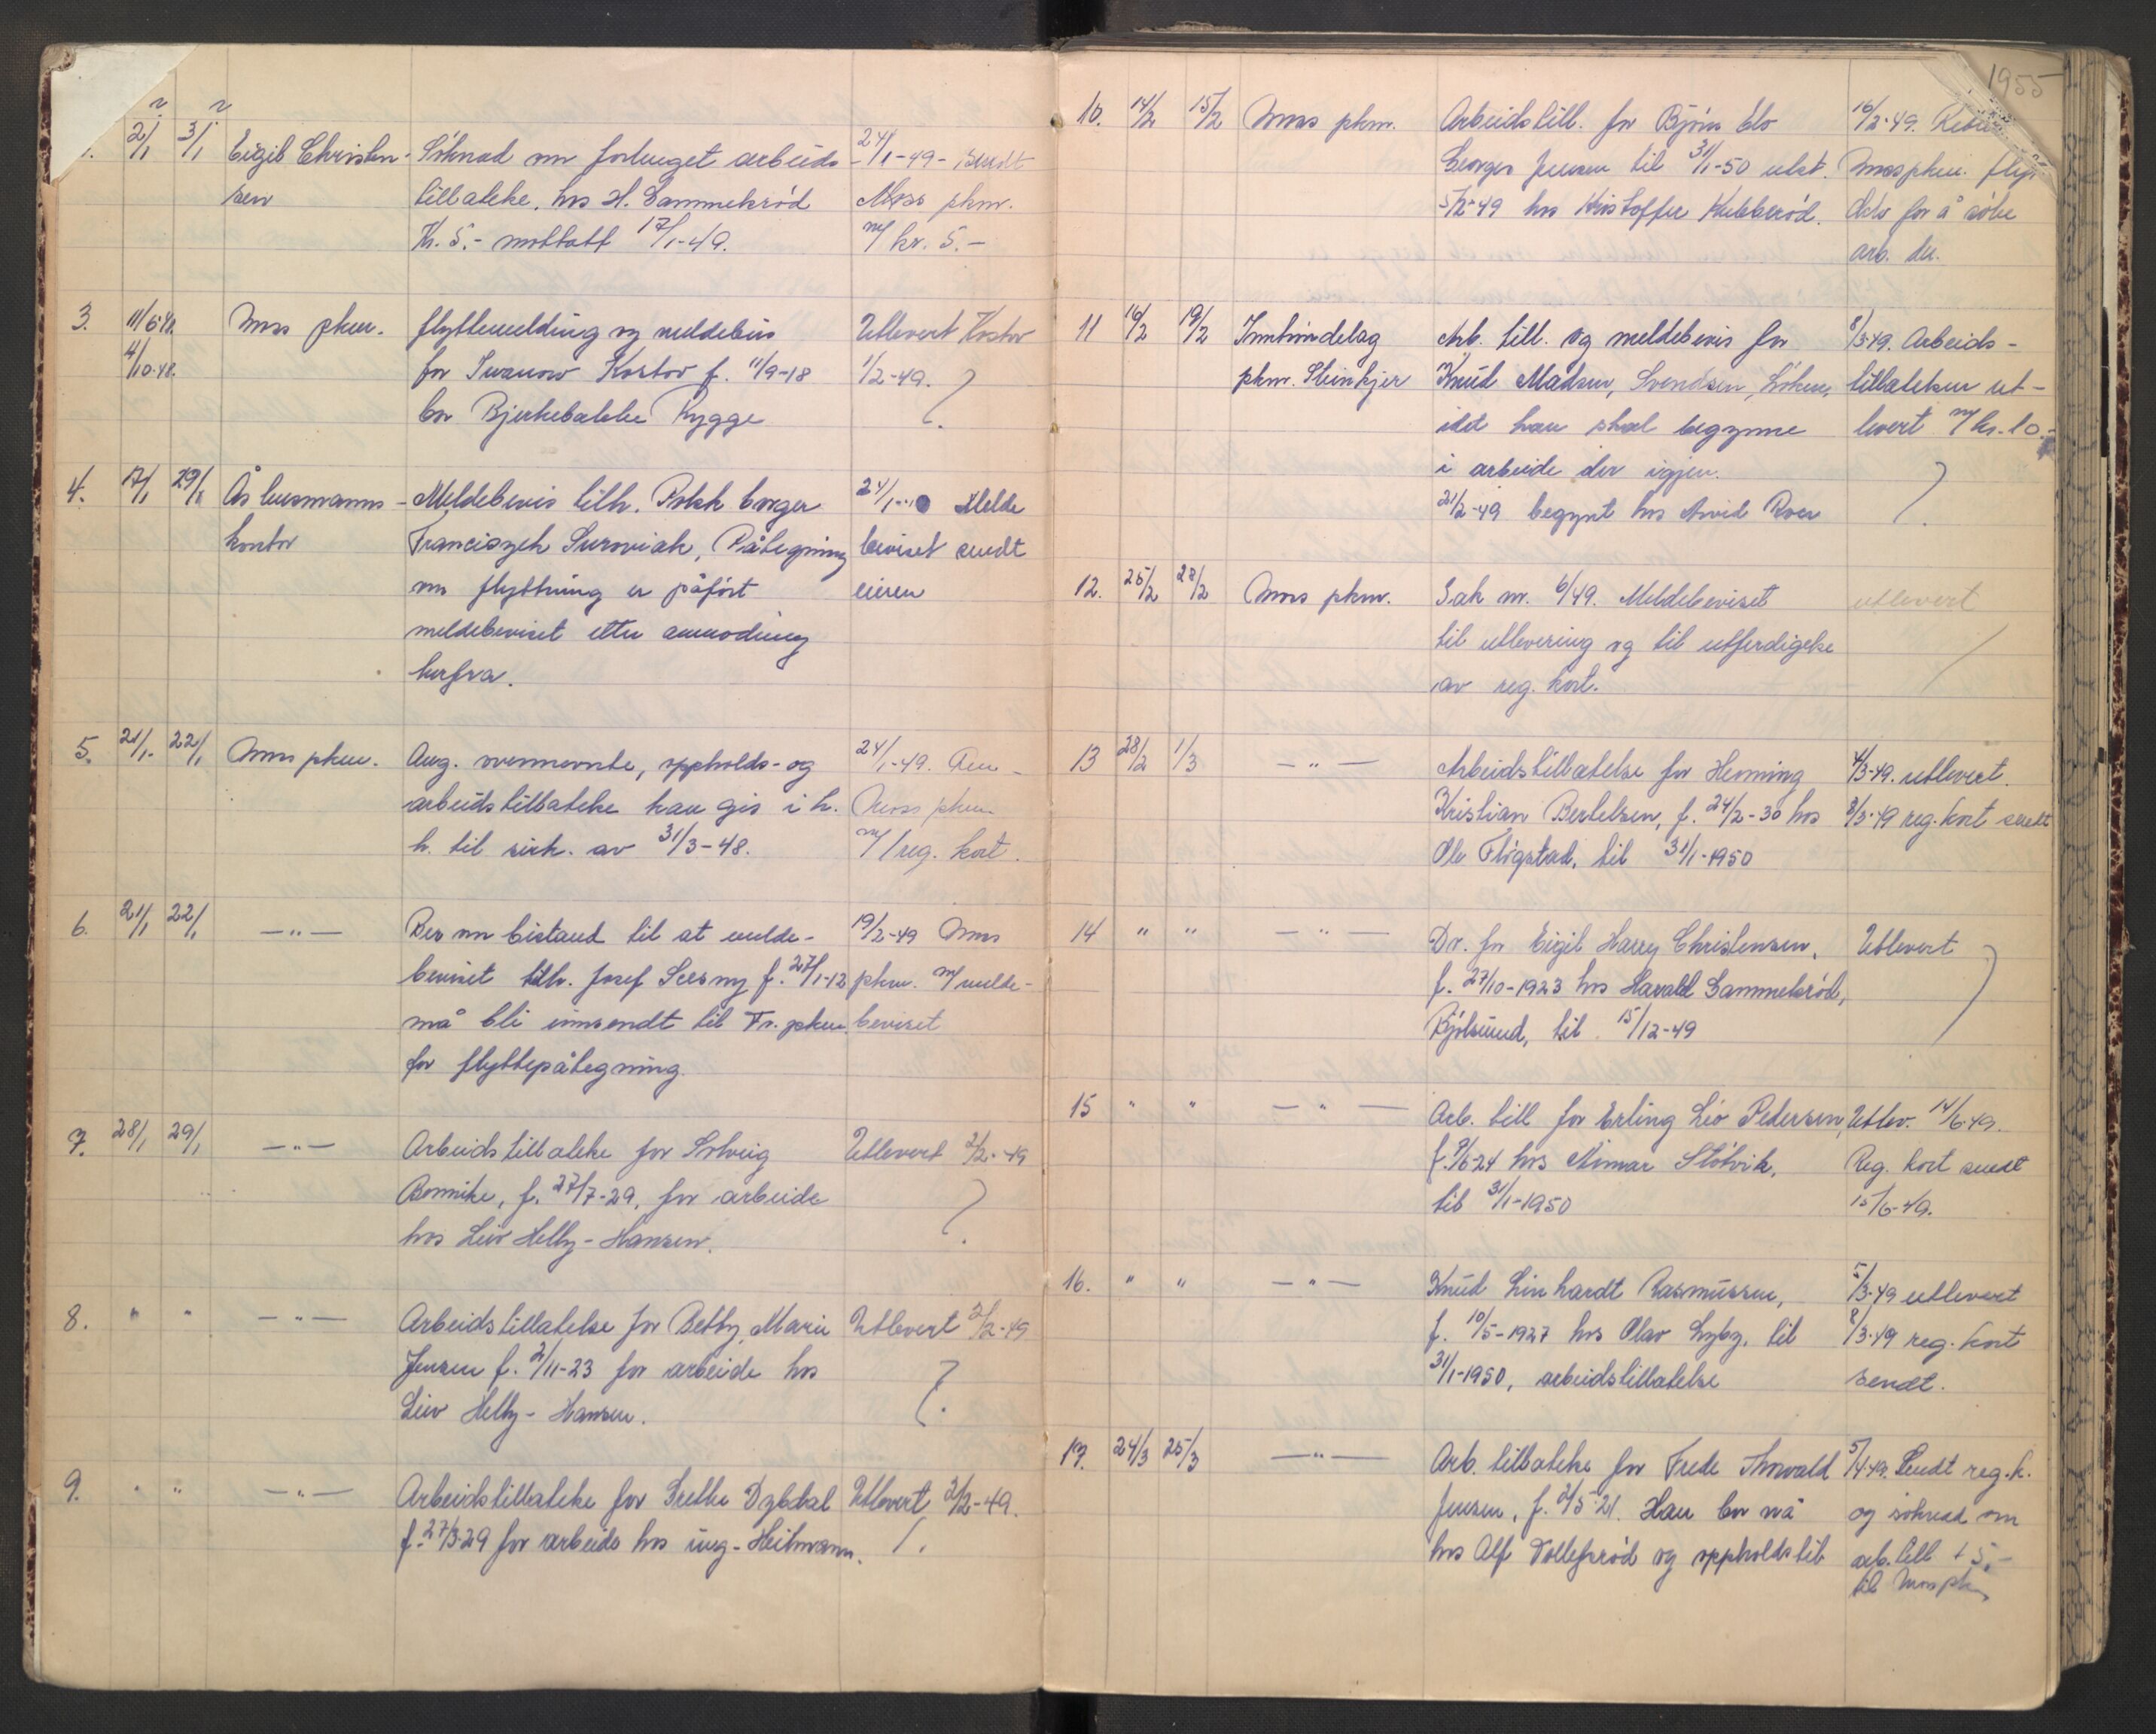 1955
2/1 3/1 Eigil Christen- Söknad om forlenget arbeids- 24/1-49- Sendt
sen tillatelse, hos H. Gammelsröd Moss pkm.
Kr. 5.- mottatt 17/1-49. m/ kr. 5.-
3. 11/6-48. Moss pkm. flyttemelding og meldebevis Utlevert Kostov
4/10-48. for Iwanow Kostov f. 11/9-18 1/2-49.
bor Bjerkebakke Rygge
4. 17/1 29/1 Ås lensmanns- Meldebevis tilh. Polsk borger 24/1- Melde
kontor Franciszek Suroviak, Påtegning beviset sendt
om flyttning er påfört eieren
meldebeviset etter anmodning
herfra.
5. 21/1- 22/1 Moss pkm. Ang. ovennevnte, oppholds- og 24/1-49.
arbeidstillatelse kan gis i h. Moss pkm.
h. til sirk. av 31/3-48. m/ 1 reg. kort.
6. 21/1 22/1 — " — Ber om bistand til at melde- 19/2-49 Moss
beviset tilh. Josef f. 27/1-12 pkm. m/ melde-
må bli innsendt til Tr. pkm. beviset
for flyttepåtegning.
7. 28/1 29/1 — " — Arbeidstillatelse for Solveig Utlevert 2/2-49
Bonnike, f. 27/7-29, for arbeide
hos Leiv Helly-Hansen.
8. " " — " — Arbeidstillatelse for Betty Marie Utlevert 2/2-49
Jensen f. 2/11-23 for arbeide hos
Leiv Helly-Hansen.
9. " " — " — Arbeidstillatelse for Grethe Dybdal Utlevert 2/2-49.
f. 27/3-29 for arbeide hos ing. Heitmann.
10. 14/2 15/2 Moss pkm. Arbeidstill. for Björn Elo 16/2-49.
Georges Jensen til 31/1-50 utst. Moss pkm.
5/2-49 hos Kristoffer Kubberöd. Oslo for å söke
arb. der.
11 16/2 19/2 Inntröndelag Arb. till. og meldebevis for 8/3-49. Arbeids-
pkm. Steinkjer Knud Madsen, Svendsen, Löken, tillatelsen ut-
idet han skal begynne levert m/ kr. 10.-
i arbeide der igjen.
21/2-49 begynt hos Arvid Roer
12. 25/2 28/2 Moss pkm. Sak nr. 6/49. Meldebeviset utlevert
til utlevering og til utferdigelse
av reg. kort.
13 28/2 1/3 — " — Arbeidstillatelse for Henning 4/3-49. utlevert.
Kristian Bertelsen, f. 24/2-30 hos 8/3-49 reg. kort sendt
Ole Fligstad, til 31/1-1950
14 " " — " — Do. for Eigil Harry Christensen, Utlevert
f. 27/10-1923 hos Harald Gammelsröd,
Bjölsund, til 15/12-49
15 " " — " — Arb. till for Erling Leo Pedersen, Utlev. 14/6-49.
f. 9/6-24 hos Einar Slötvik, Reg. kort sendt
til 31/1-1950 15/6-49.
16. " " — " — Knud Linhardt Rasmussen, 5/3-49 utlevert
f. 10/5-1927 hos Olav Lyby, til 8/3-49 reg. kort
31/1-1950, arbeidstillatelse sendt.
17. 24/3 25/3 — " — Arb. tillatelse for Frede Thorvald 5/4-49. Sendt reg. k.
Jensen, f. 2/5-21. Han bor nå og söknad om
hos Alf Tollefsröd og oppholdstill arb. till + 5.-
til Moss pkm